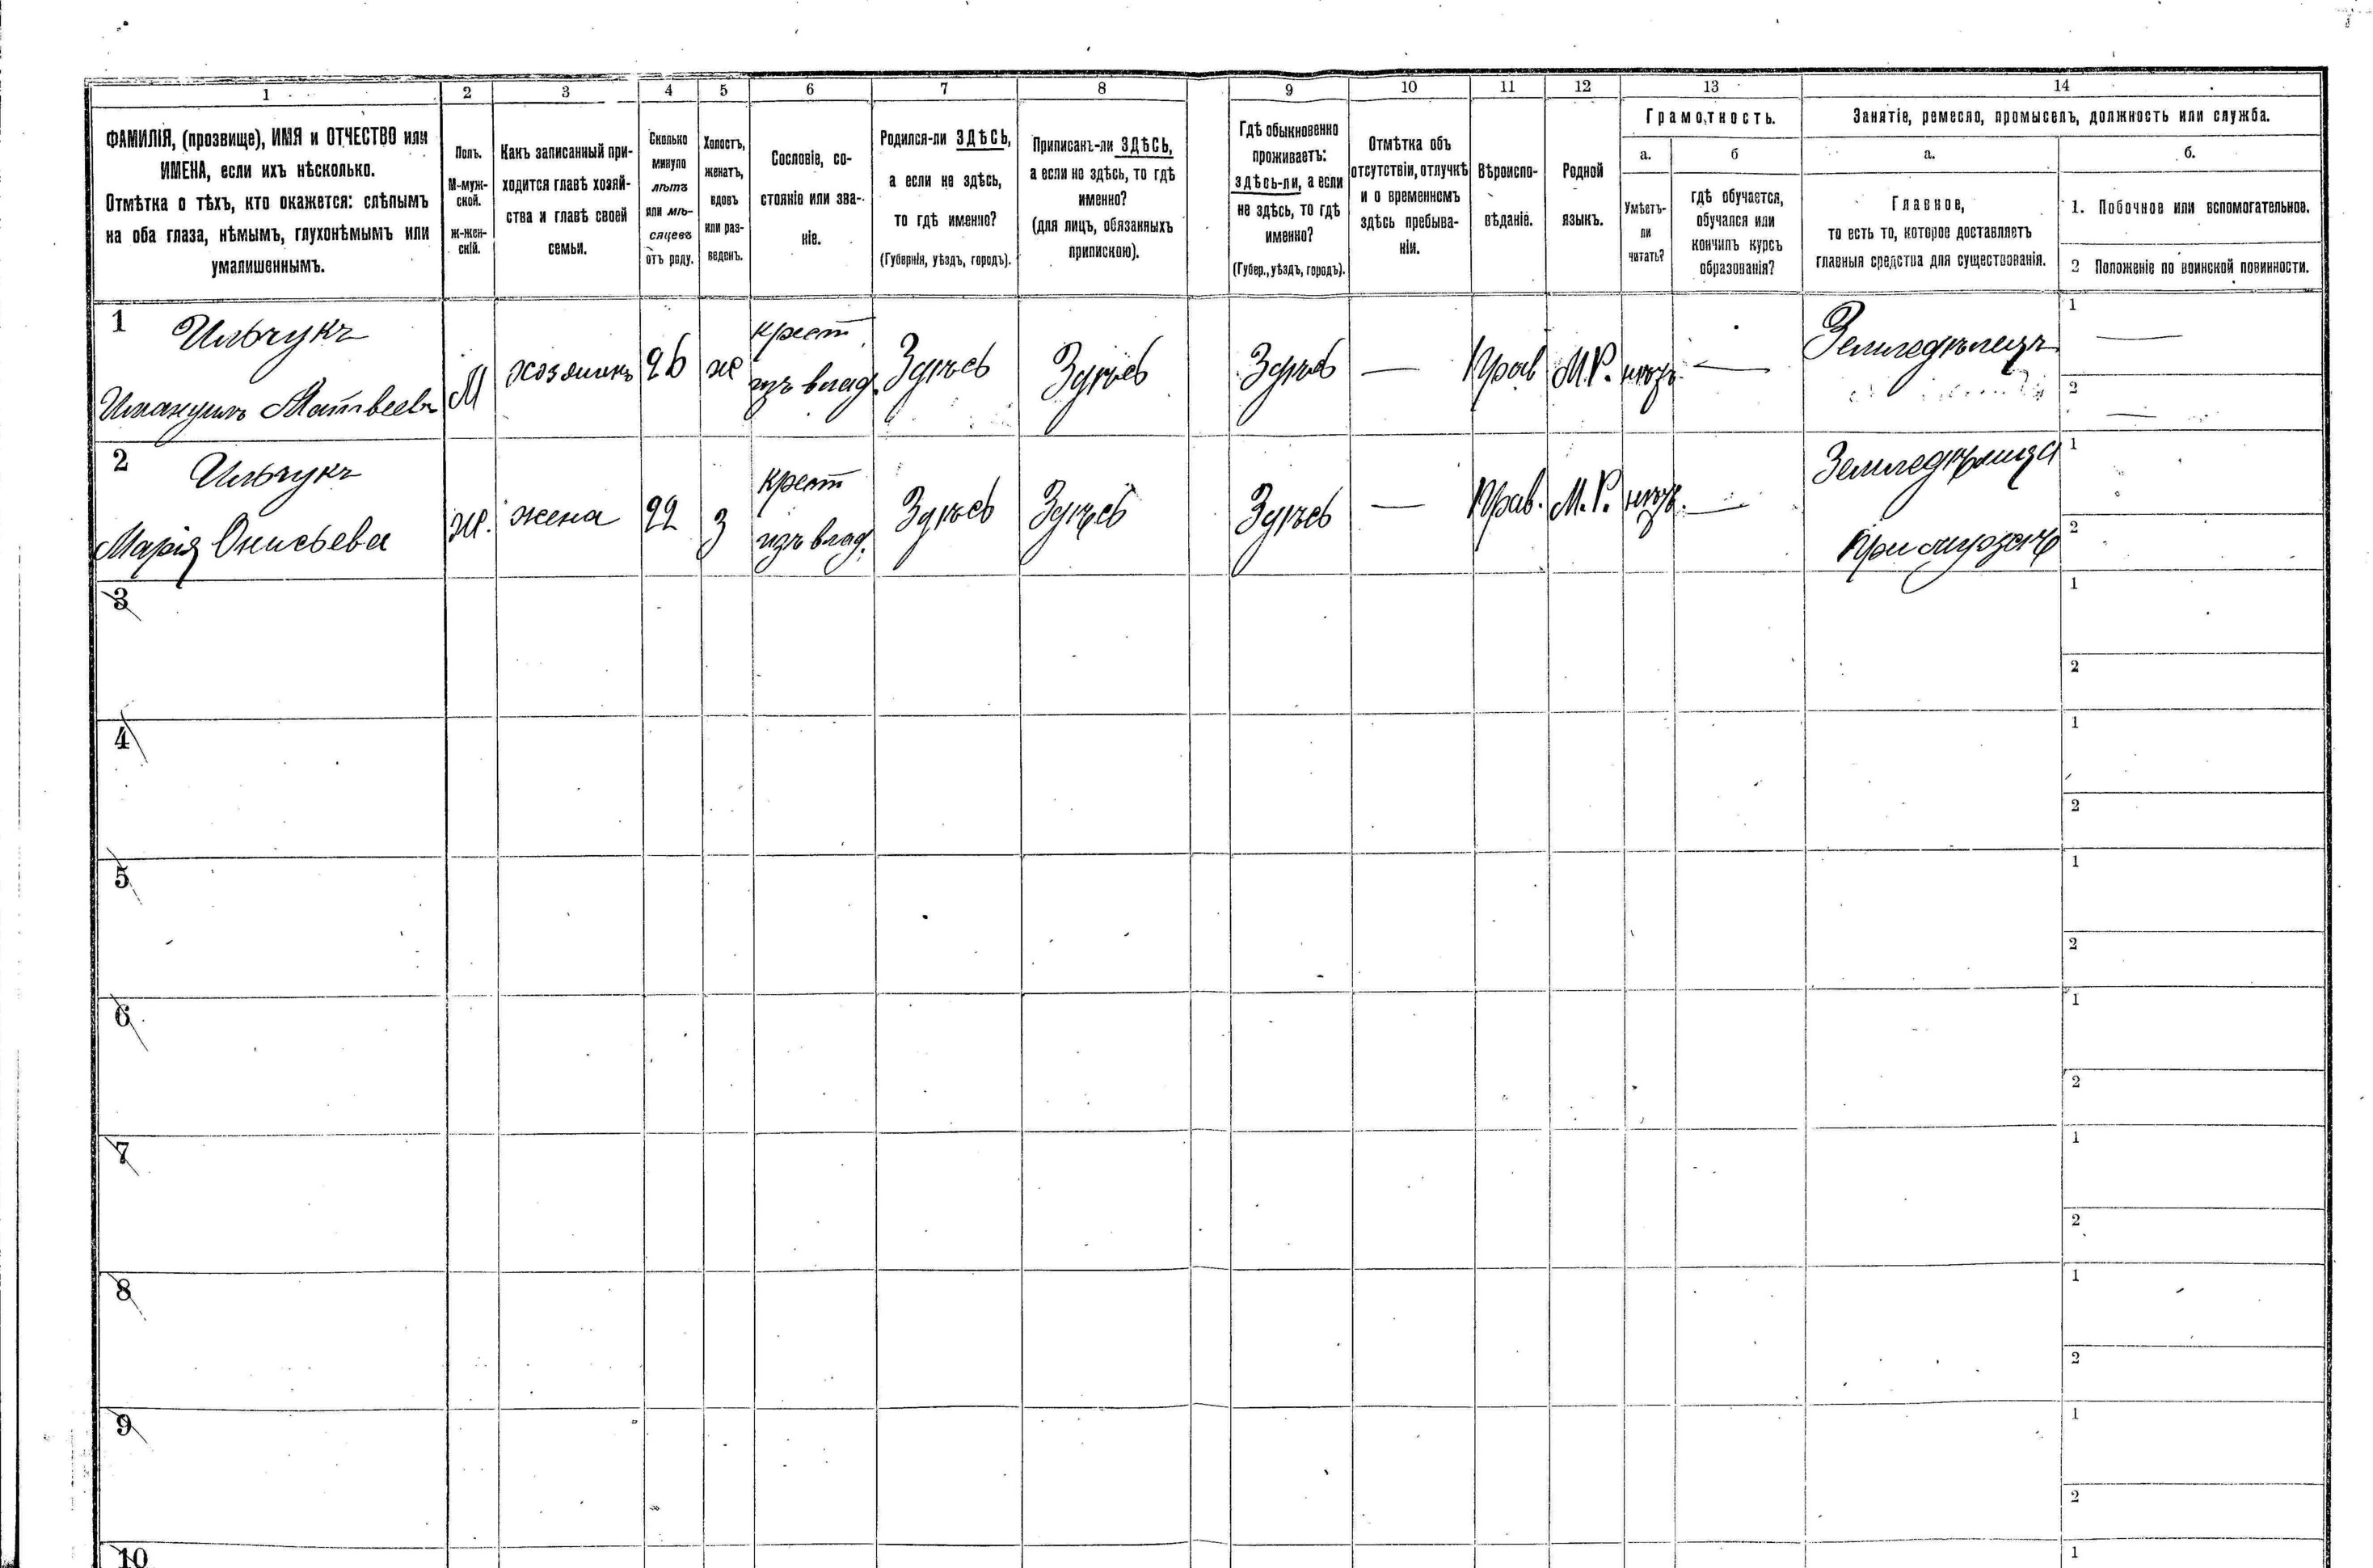 1 2 3 4 5 6 7 8 9 10 11 12 13 14
ФАМИЛІЯ, (прозвище), ИМЯ и ОТЧЕСТВО или
ИМЕНА, если ихъ нѣсколько.
Отмѣтка о тѣхъ, кто окажется: слѣпымъ
на оба глаза, нѣмымъ, глухонѣмымъ или
умалишеннымъ.
Полъ.
М-муж-
ской.
ж-жен-
скій.
Какъ записанный при-
ходится главѣ хозяй-
ства и главѣ своей
семьи.
Сколько
минуло
лѣтъ
или мѣ-
сяцевъ
отъ роду.
Холостъ,
женатъ,
вдовъ
или раз-
веденъ.
Сословіе, со-
стояніе или зва-
ніе.
Родился-ли ЗДѢСЬ,
а если не здѣсь,
то гдѣ именно?
(Губернія, уѣздъ, городъ).
Приписанъ-ли ЗДѢСЬ,
а если не здѣсь, то гдѣ
именно?
(для лицъ, обязанныхъ
припискою).
Гдѣ обыкновенно
проживаетъ:
здѣсь-ли, а если
не здѣсь, то гдѣ
именно?
(Губер., уѣздъ, городъ).
Отмѣтка объ
отсутствіи, отлучкѣ
и о временномъ
здѣсь пребыва-
ніи.
Вѣроиспо-
вѣданіе.
Родной
языкъ.
Грамотность.
а.
Умѣетъ-
ли
читать?
б
гдѣ обучается,
обучался или
кончилъ курсъ
образованія?
Занятіе, ремесло, промыселъ, должность или служба.
а.
Главное,
то есть то, которое доставляетъ
главныя средства для существованія.
б.
1. Побочное или вспомогательное.
2 Положеніе по воинской повинности.
1
Ильчукъ
Имануилъ Матвеевъ
М
хозяинъ
26
ж
крест
изъ влад.
Здѣсь
Здѣсь
Здѣсь
—
Прав
М.Р.
нѣтъ
—
Земледѣлецъ
1 —
2 —
2
Ильчукъ
Марія Онисьева
ж.
жена
22
з
крест
изъ влад.
Здѣсь
Здѣсь
Здѣсь
—
Прав.
М.Р.
нѣтъ.
—
Земледѣлица
при мужѣ
1
2
3
1
2
4
1
2
5
1
2
6
1
2
7
1
2
8
1
2
9
1
2
10
1